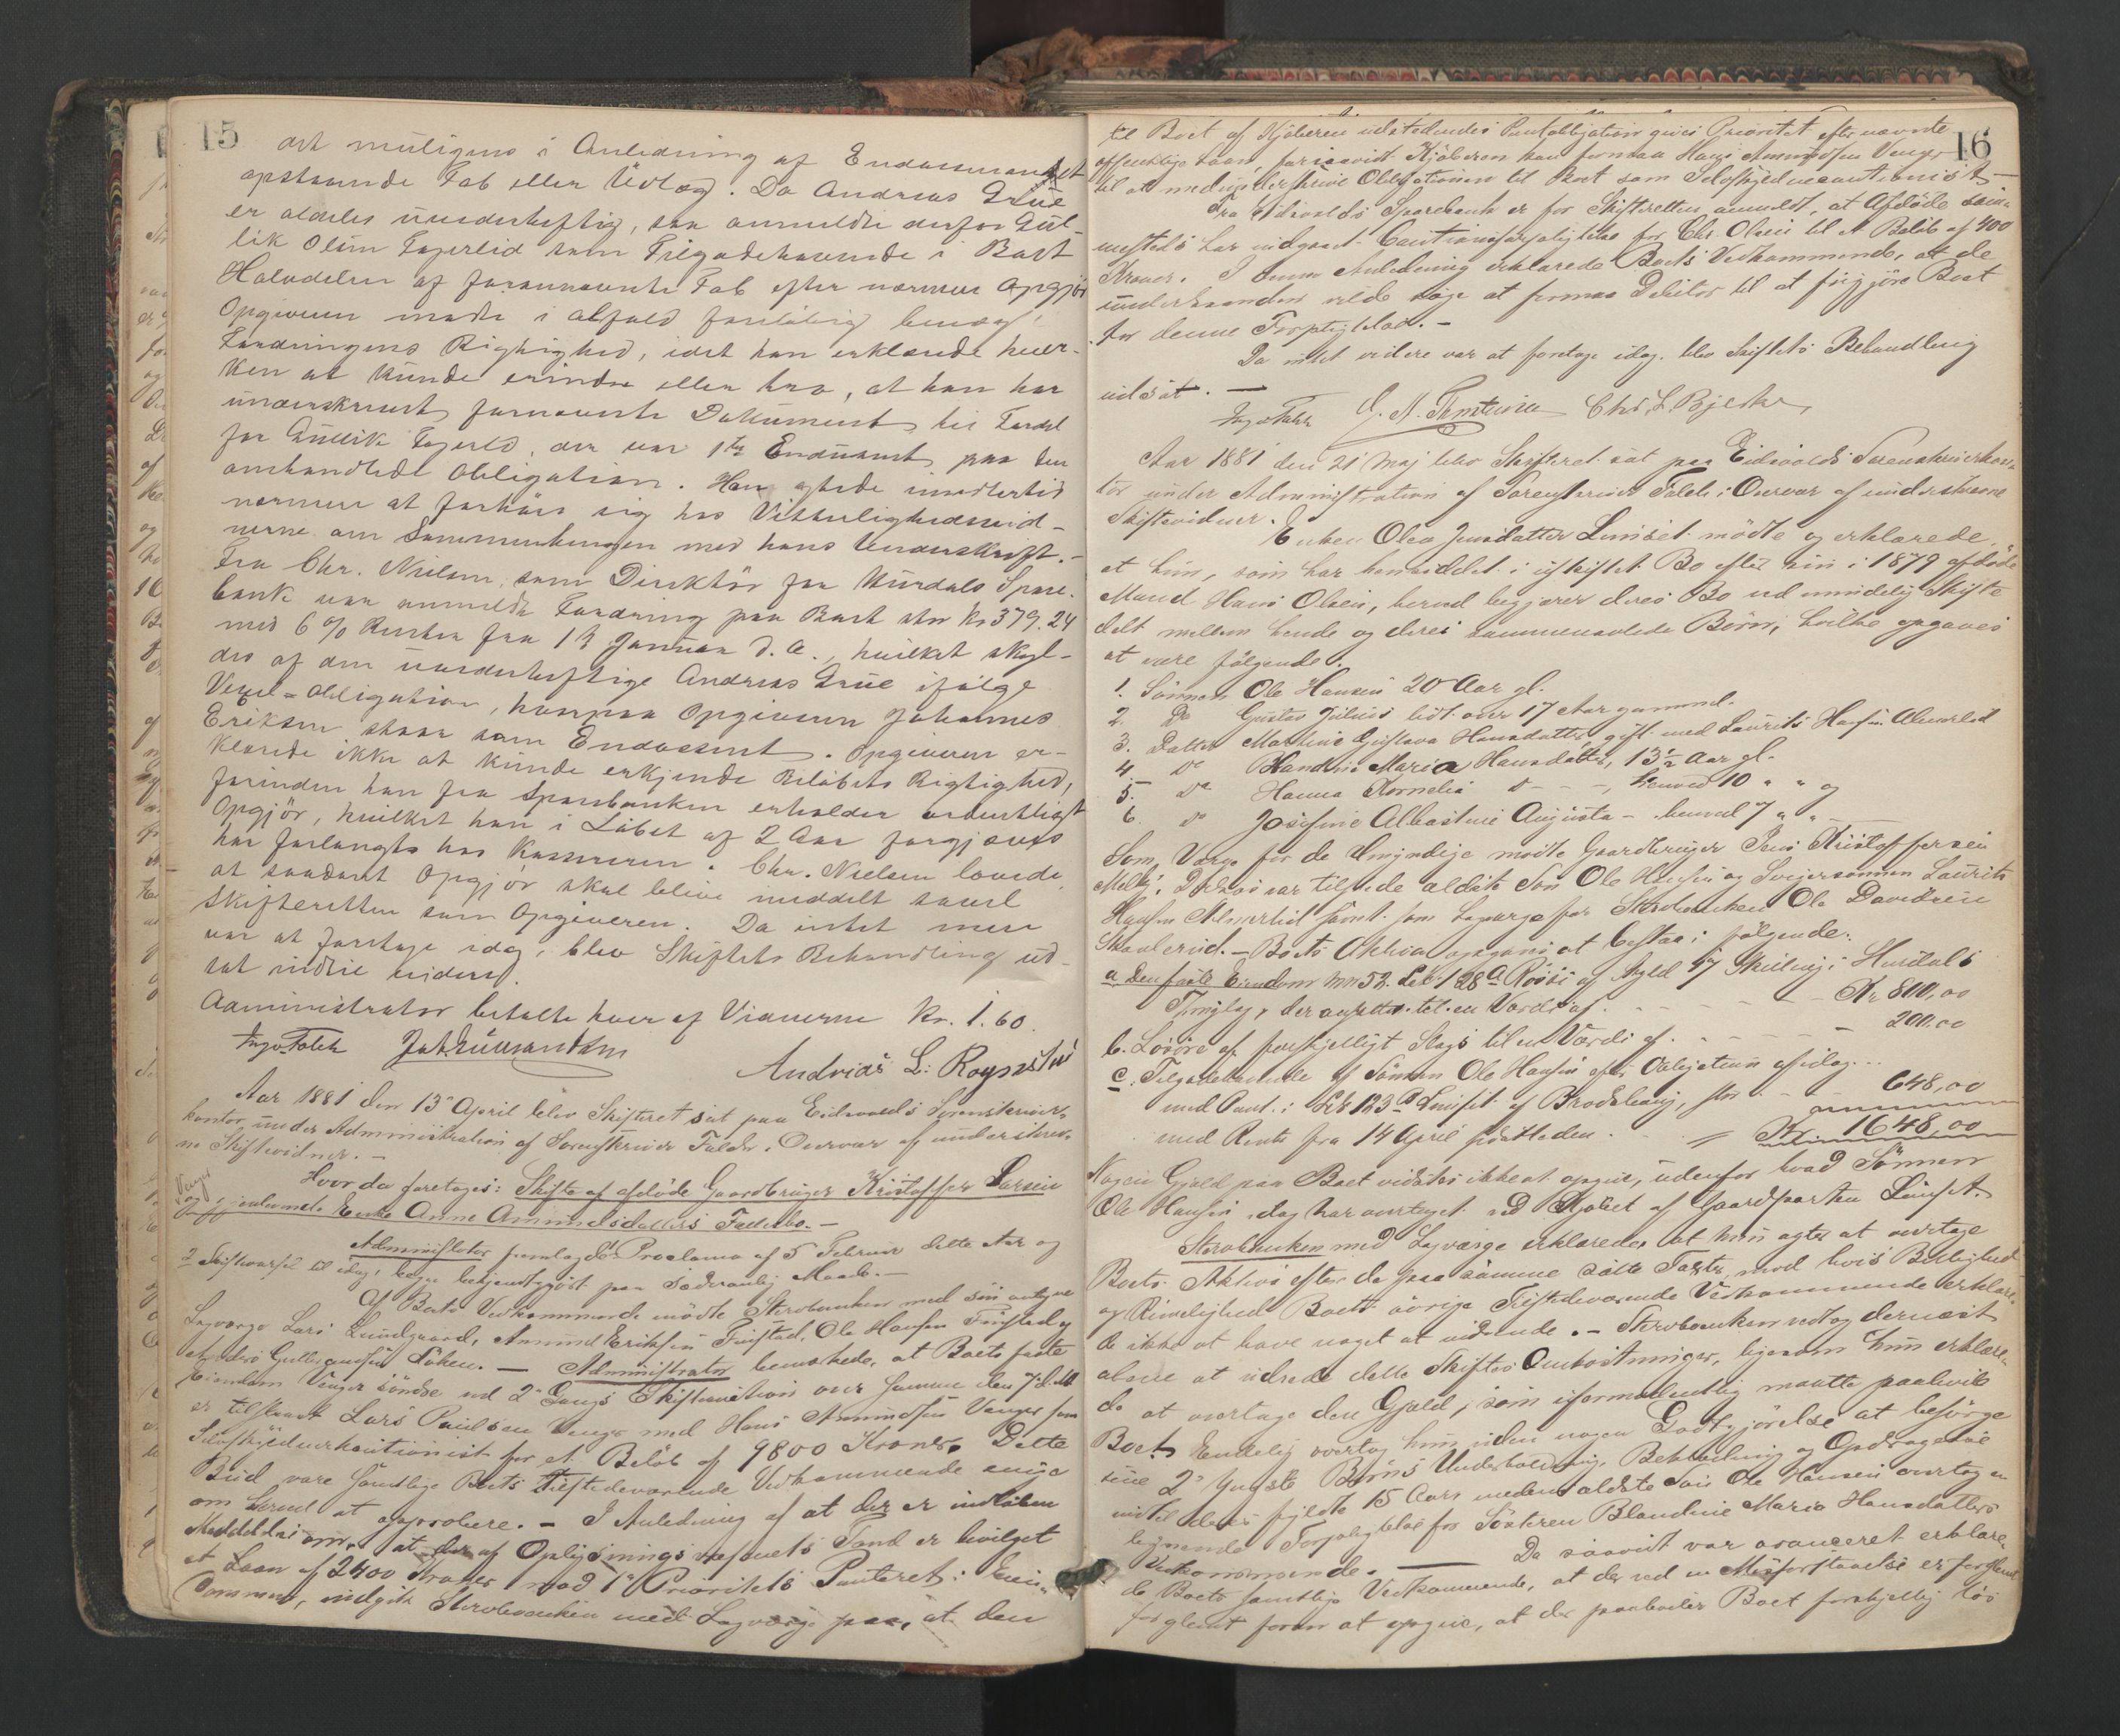 15
det muligens i Anledning af Endossementet
opstaaende Tab eller Udlæg. Da Andreas Grue
er aldeles uvederheftig, saa anmeldte derfor Gul-
lik Olsen Fagerlid sum Tilgodehavende i Boet
Halvdelen af forannævnte Tab efter nærmere Opgjør
Opgiveren mødte i alfald foreløbig
Fordringens Rigtighed, idet han erklærede hver-
ken at kunde erindre eller tro, at han har
underskrevet fornævnte Dokument til Fordel
for Gullik Fagerli, der var 1ste Endossent paa den
omhandlede Obligation. Han agtede imidlertid
nærmere at forhøre sig hos Vitterlighedsvid-
nerne om Sammenhengen med hans Underskrift.-
Fra Chr. Nielsen, som Direktør for Hurdals Spare-
bank var anmeldt Fordring paa Boet stor Kr 379.24
med 6 % Renter fra 13 Januar d. A., hvilket skyl-
des af den uvederheftige Andreas Grue ifølge
Vexel=Obligation, hvorpaa Opgiveren Johannes
Eriksen staar som Endossent. Opgiveren er-
klærede ikke at kunde erkjende Beløbets Rigtighed,
førinden han fra Sparebanken erholder ordentligt
Opgjør, hvilket han i Løbet af 2 Aar forgjæves
har forlangt hos Kassereren. Chr. Nielsen lovede
at saadant Opgjør skal blive meddelt saavel
Skifteretten som Opgiveren. Da intet mere
var at foretage idag, blev Skiftets Behandling ud-
sat indtil videre.
Administrator betalte hver af Vidnerne Kr. 1.60.
Andreas L: Røysi
Aar 1881 den 13de April blev Skifteret sat paa Eidsvolds Sorenskriver-
kontor under Administration af Sorenskriver Falch. Overvær af underskrev-
ne Skiftevidner.-
Hvorda foretoges: Skifte af afdøde Gaardbruger Kristoffer Larsen
Venger
og gjenlevende Enke Anne Amundsdatters Fællesbo.-
Administrator fremlagde Proclama af 5 Februar dette Aar og
2 Skiftevarsel til idag, begge bekjendtgjort paa sædvanlig Maade.-
Af Boets Vedkommende mødte Stervboenken med sin antagne
Lagværge Lars Lundgaard, Amund Eriksen Finstad, Ole Hansen Finstad og
Anders Gulbrandsen Løken. — Administrator bemærkede, at Boets faste
Eiendom Venger søndre ved 2den Gangs Skifteauktion over samme den 7 d. M
er tilslaaet Lars Paulsen Venger med Hans Amundsen Venger som
Selvskyldnerkautionist for et Beløb af 9800 Kroner. Dette
Bud vare samtlige Boets tilstedeværende Vedkommende enige
om herved at approbere. - I Anledning af at der er indløben
Meddelelse om, at der af Oplysningsvæsenets Fond er bevilget
et Laan af 2400 Kroner mod 1ste Prioritets Panteret i Eien-
dommen, indgik Stervboenken med Lagværge paa, at den
16
til Boet af Kjøberen udstedendes Pantobligation gives Prioritet efter nævnte
offentlige Laan, forsaavidt Kjøberen kan formaa Hans Amundsen Venger
til at medunderskrive Obligationen til Boet som Selvskyldnercautionist.-
Fra Eidsvolds Sparebank er for Skifteretten anmeldt, at Afdøde som-
mesteds har indgaaet Cautionsforpligtelse for Chr. Olsen til et Beløb af 400
Kroner. I denne Anledning erklærede Boets Vedkommende, at de
underhaanden vilde søge at formaa Debitor til at frigjøre Boet
for denne Forpligtelse.-
Da intet videre var at foretage idag, blev Skiftets Behandling
udsat. —
Chr. L. Bjerke,
Aar 1881 den 21 Maj blev Skifteret sat paa Eidsvolds Sorenskriverkon-
tor under Administration af Sorenskriver Falch i Overvær af underskrevne
Skiftevidner.
Enken Olea Jensdatter Lunset mødte og erklærede,
at hun, som har hensiddet i uskiftet Bo efter sin i 1879 afdøde
Mand Hans Olsen, herved begjærer deres Bo ved mindelig Skifte
delt mellem hende og deres sammenavlede Børn, hvilke opgaves
at være følgende.
1. Sønnen Ole Hansen 20 Aar gl.
2. Do Gustav Julius lidt over 17 Aar gammel.
3. Datter Martine Gustava Hansdatter, gift med Laurits Hansen Almerlid
4. Do Blandine Maria Hansdatter, 13½ Aar gl.
5. Do Hanna Kornelia D- - -, henved 10 " " og
6. Do Josefine Albertine Augusta - henved 7 " " -
Som Værge for de Umyndige mødte Gaardbruger Jens Kristoffersen
Melby. Derhos var tilstede ældste Søn Ole Hansen og Svigersønnen Laurits
Hansen Almerlid samt som Lagværge for Stervboenken Ole Davidsen
Skanlerud.- Boets Aktiva opgaves at bestaa i følgende:
a. Den faste Eiendom mn 52. Lb 128a Røise af Skyld 17 Skilling i Hurdals
Thinglag, der ansættes til en Værdi af - - - - - Kr 800,00
b. Løsøre af forskjelligt Slags til en Værdi af - - - - 200.00
c. Tilgodehavende af Sønnen Ole Hansen efter Obligation af idag...
med Pant i Lb 123 b Lunset af Brodshaug, stor - - 648,00
med Rente fra 14 April sidstleden - - - Kr. 1648,00
Nogen Gjæld paa Boet vidstes ikke at opgive, udenfor hvad Sønnen
Ole Hansen idag har overtaget ved Kjøbet af Gaardparten Lunset.
Stervboenken med Lagværge erklærede, at hun agter at overtage
Boets Aktiva efter de paa samme satte Taxter, mod hvis Billighed
og Rimelighed Boets øvrige tilstedeværende Vedkommende erklære-
de ikke at have noget at indvende. - Stervboenken vedtog dernæst
alene at udrede dette Skiftes Omkostninger, ligesom hun erklære-
de at overtage den Gjæld, som iformodentlig maatte paahvile
Boet. Endelig overtog hun uden nogen Godtgjørelse at besørge
sine 2de yngste Børns Underholdning, Beklædning og Opdragelse
indtil deres fyldte 15 Aar, medens ældste Søn Ole Hansen overtog en
lignende Forpligtelse for Søsteren Blandine Maria Hansdatters
Vedkommende. — Da saavidt var avanceret erklære-
de Boets samtlige Vedkommende, at der ved en Misforstaaelse er
forglemt foran at opgive, at der paahviler Boet forskjellig løs